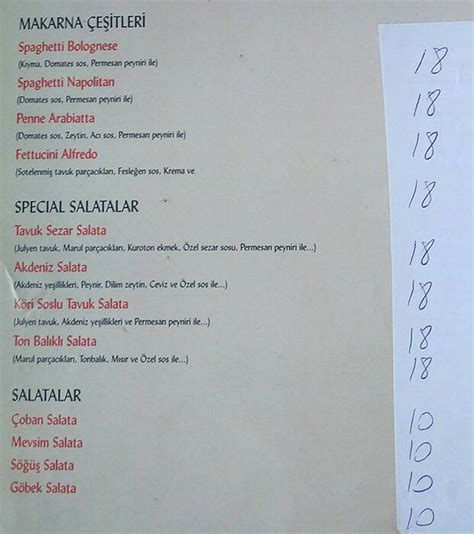 MAKARNA ÇEŞİTLERİ
Spaghetti Bolognese 18
(Kıyma, Domates sos, Permesan peyniri ile)
Spaghetti Napolitan 18
(Domates sos, Permesan peyniri ile)
Penne Arabiatta 18
(Domates sos, Zeytin, Acı sos, Permesan peyniri ile)
Fettucini Alfredo 18
(Sotelenmiş tavuk parçacıkları, Fesleğen sos, Krema ve
SPECIAL SALATALAR
Tavuk Sezar Salata 18
(Julyen tavuk, Marul parçacıkları, Kuroton ekmek, Özel sezar sosu, Permesan peyniri ile...)
Akdeniz Salata 18
(Akdeniz yeşillikleri, Peynir, Dilim zeytin, Ceviz ve Özel sos ile...)
Köri Soslu Tavuk Salata 18
(Julyen tavuk, Akdeniz yeşillikleri ve Permesan peyniri ile...)
Ton Balıklı Salata 18
(Marul parçacıkları, Tonbalık, Mısır ve Özel sos ile...)
SALATALAR
Çoban Salata 10
Mevsim Salata 10
Söğüş Salata 10
Göbek Salata 10